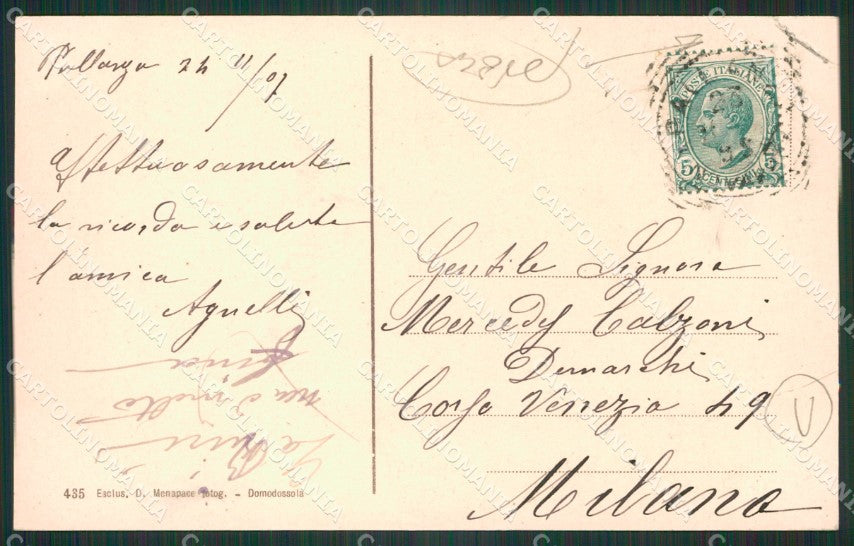 Pallanza 24 11/07
Affettuosamente
la ricorda e saluta
l'amica
Agnelli
Gentile Signora
Mercedes Calzoni
Demarchi
Corso Venezia 49
Milano
POSTE ITALIANE
5 5
435 Esclus. D. Menapace fotog. – Domodossola
U
CARTOLINOMANIA